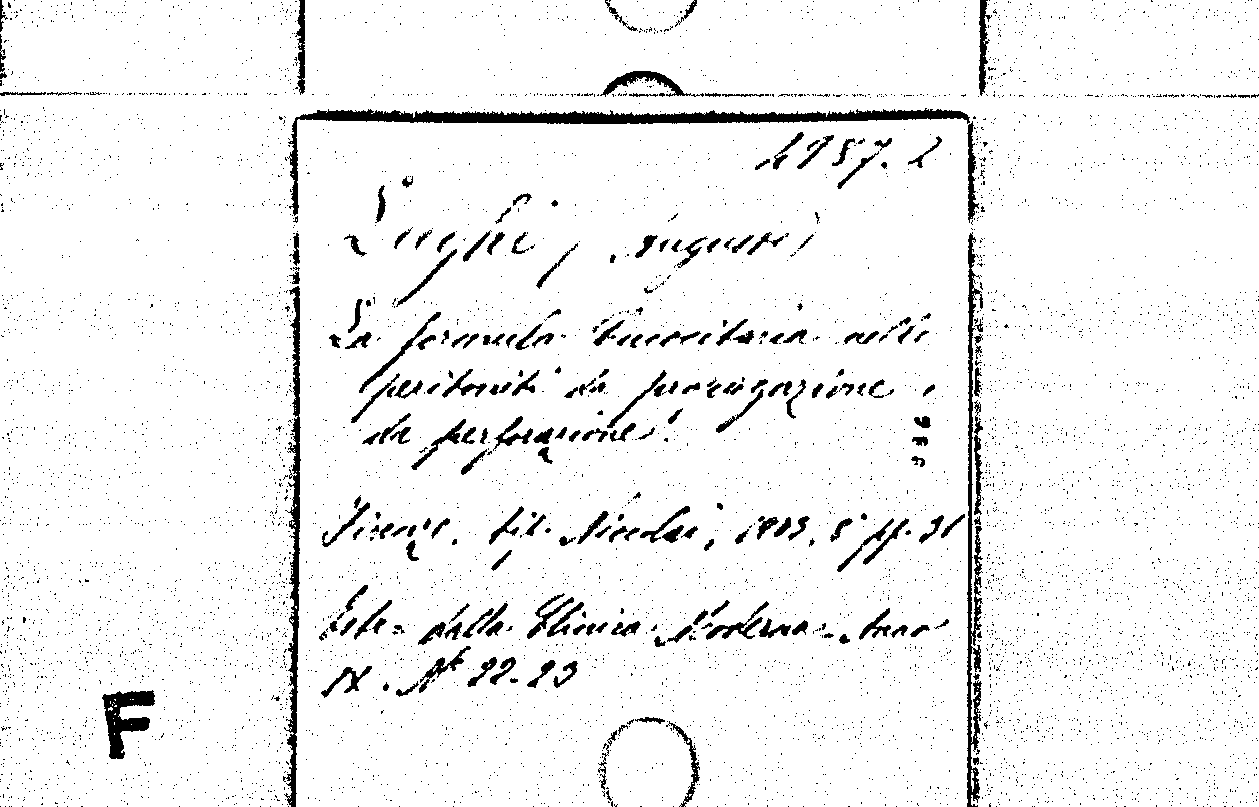 2957.2
Lughi, Augusto
La formula leucocitaria nelle
peritoniti da propagazione e
da perforazione.
Firenze, tip. Niccolai, 1903, 8° pp. 31
Estr. dalla Clinica Moderna. Anno
IX. N° 22-23
F